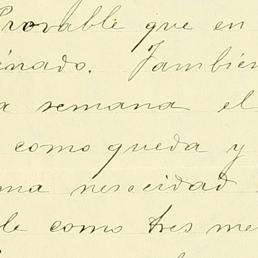 Provable que en
inado. Tambien
a semana el
como queda y
ma nescecidad
le como tres me